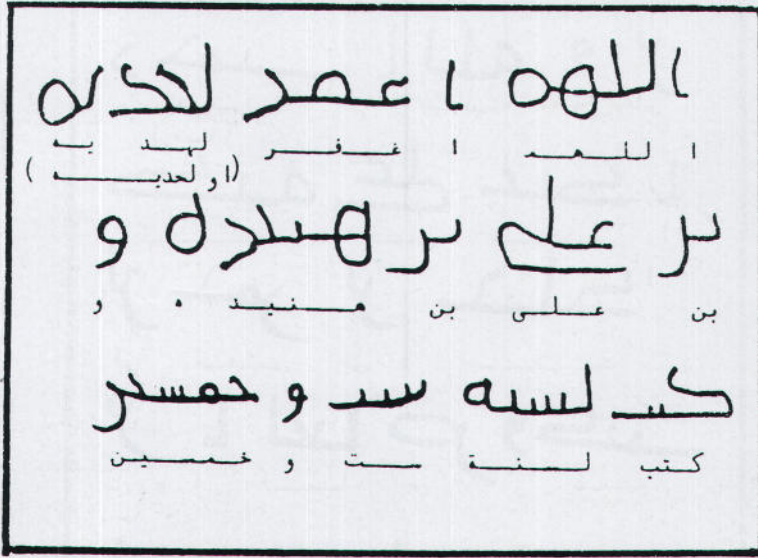 اللهم اغفر لحديه
ا للهم ا غفر لهد يه
(او لحديه)
بن علي بن هنيده و
بن على بن هنيد ه و
كتب لسنه ست و خمسين
كتب لسنة ست و خمسين